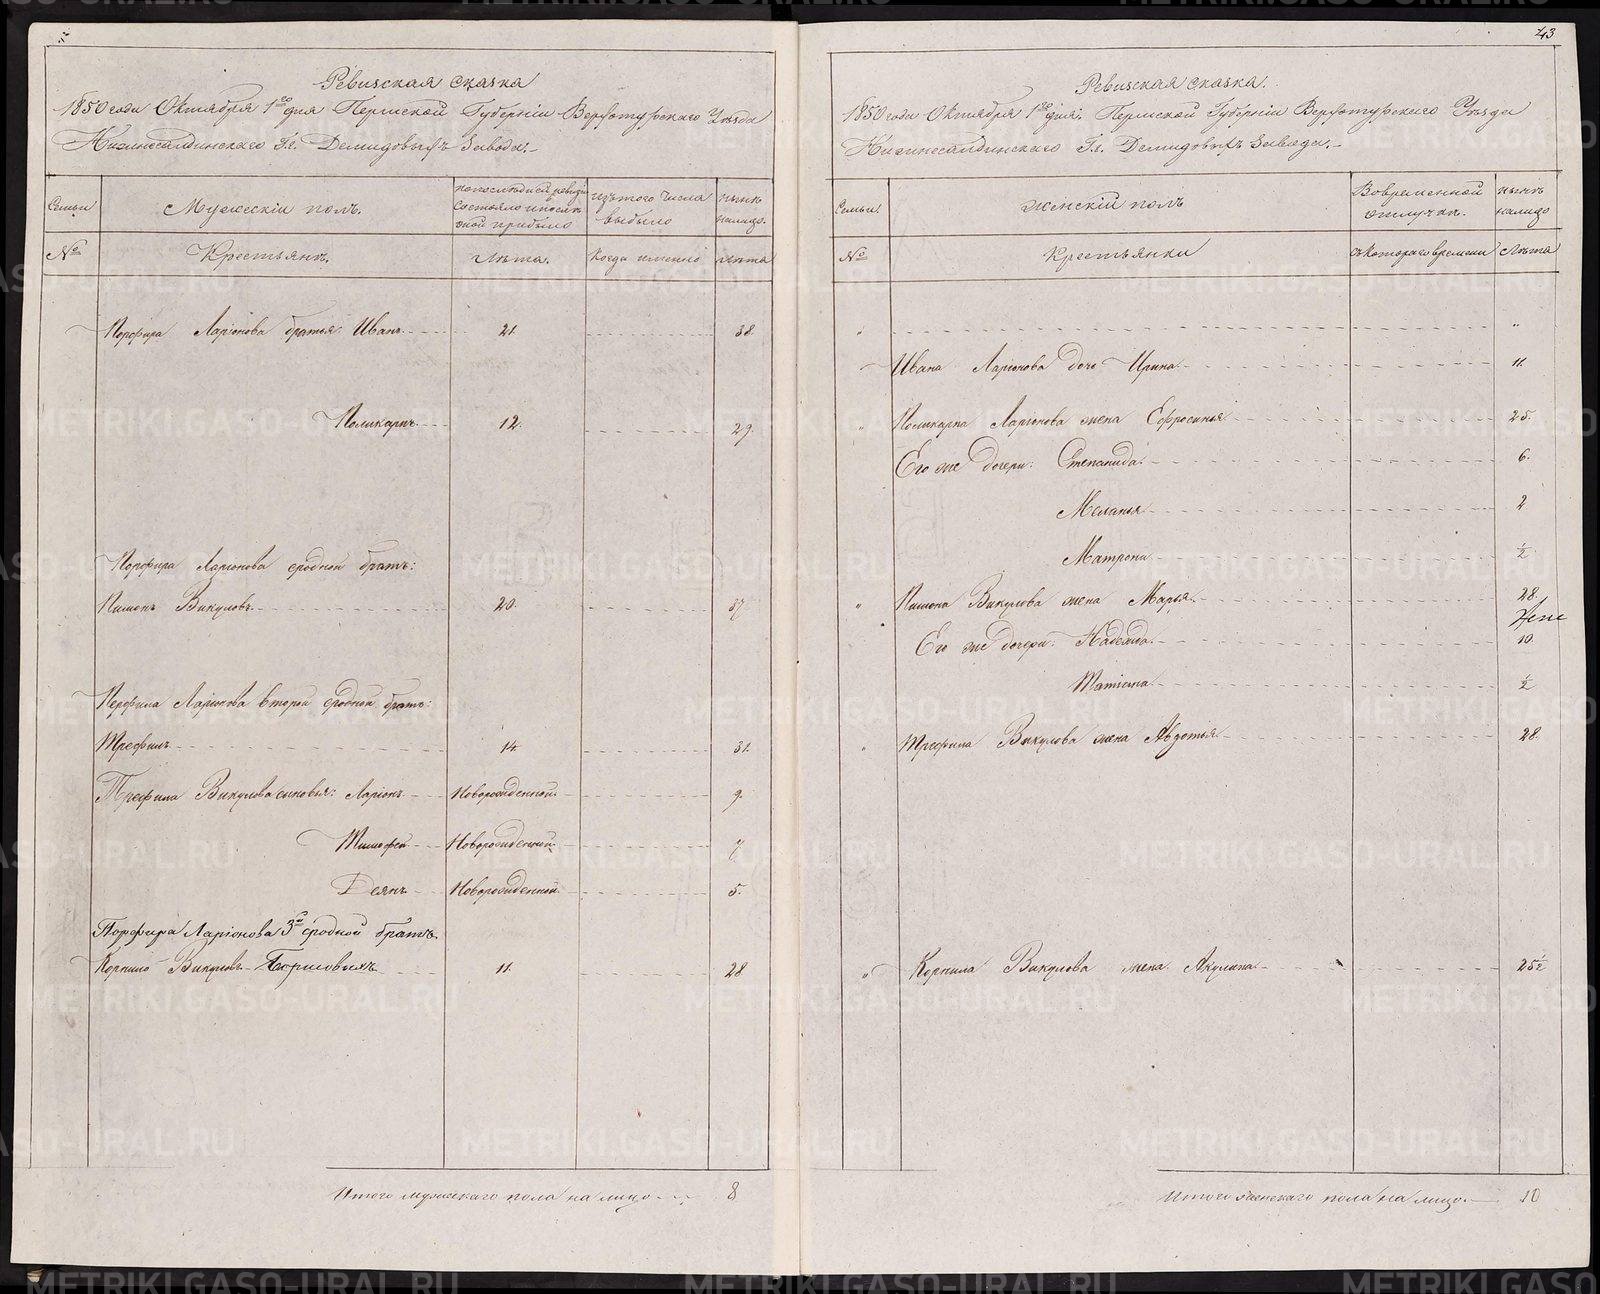 Ревизская сказка
1850 года Октября 1го дня Пермской Губерніи Верхотурскаго Уѣзда
Нижнесалдинскаго Гг. Демидовыхъ Завода.
Семьи
Мужескій полъ.
по последней ревизіи состояло и после оной прибыло
изътого числа выбыло
нынѣ налицо.
№
Крестьянъ.
Лѣта.
Когда именно
лѣта
Порфира Ларіонова братья: Иванъ 21. 38.
Поликарпъ 12. 29.
Порфира Ларіонова сродной братъ:
Пимонъ Викуловъ 20. 37
Порфира Ларіонова второй сродной братъ:
Трефилъ 14. 31.
Трефила Викулова сыновья: Ларіонъ Новорожденной. 9.
Тимофей Новорожденной 7
Деянъ Новорожденной 5.
Порфира Ларіонова 3й сродной братъ
Корнило Викуловъ Борисовыхъ 11. 28
Итого мужескаго пола на лицо 8
43
Ревизская сказка.
1850 года Октября 1го дня. Пермской Губерніи Верхотурскаго Уѣзда
Нижнесалдинскаго Гг. Демидовыхъ Завода.
Семьи.
Женскій полъ
Вовременной отлучкѣ.
нынѣ налицо
№
Крестьянки
съ котораго времени
Лѣта
Ивана Ларіонова дочь Ирина 11.
Поликарпа Ларіонова жена Ефросинья 25.
Его же дочери: Степанида. 6.
Меланья 2
Матрона ½
Пимона Викулова жена Марья 28.
Его же дочери: Надежда. 10.
Татіана ½
Трефила Викулова жена Авдотья 28.
Корнила Викулова жена Акулина 25½
Итого женскаго пола на лицо. 10
METRIKI.GASO-URAL.RU